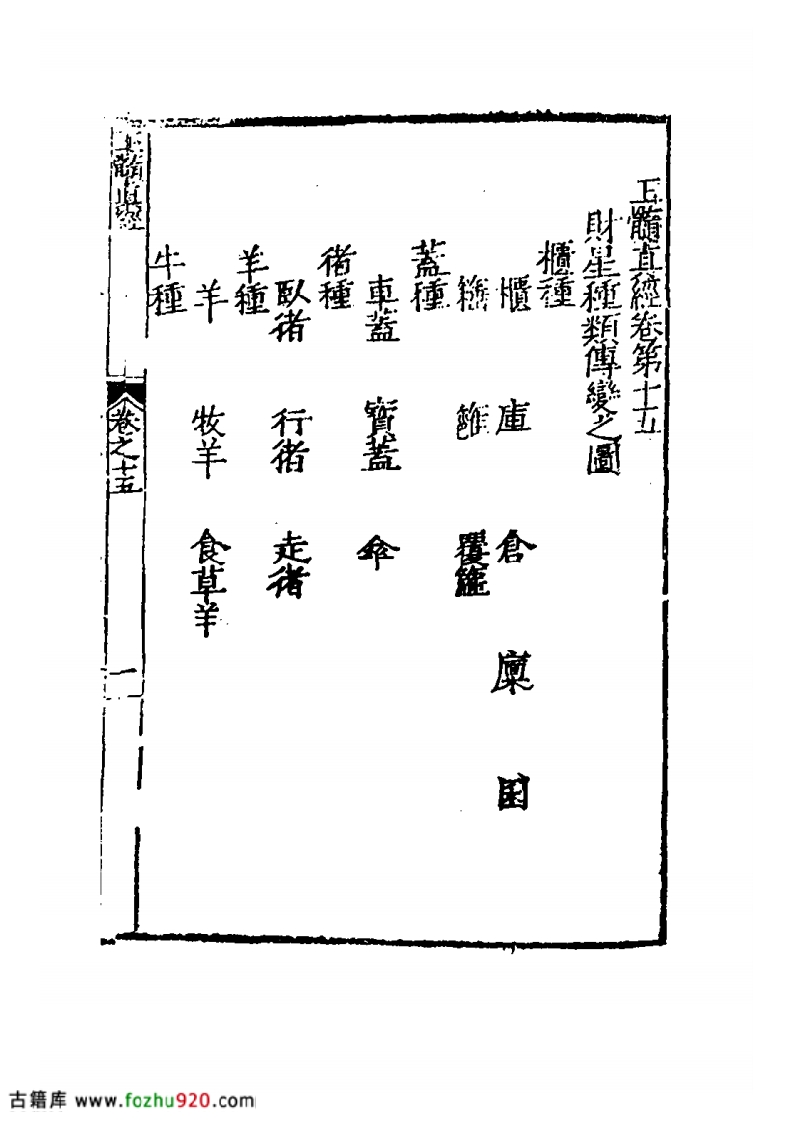 玉髓真經卷第十五
財星種類傳變之圖
櫃種
櫃 庫 倉 廩 囷
蓋種
車蓋 寶蓋 傘
猪種
臥猪 行猪 走猪
羊種
羊 牧羊 食草羊
牛種
玉髓真經
卷之十五
一
古籍库 www.fozhu920.com